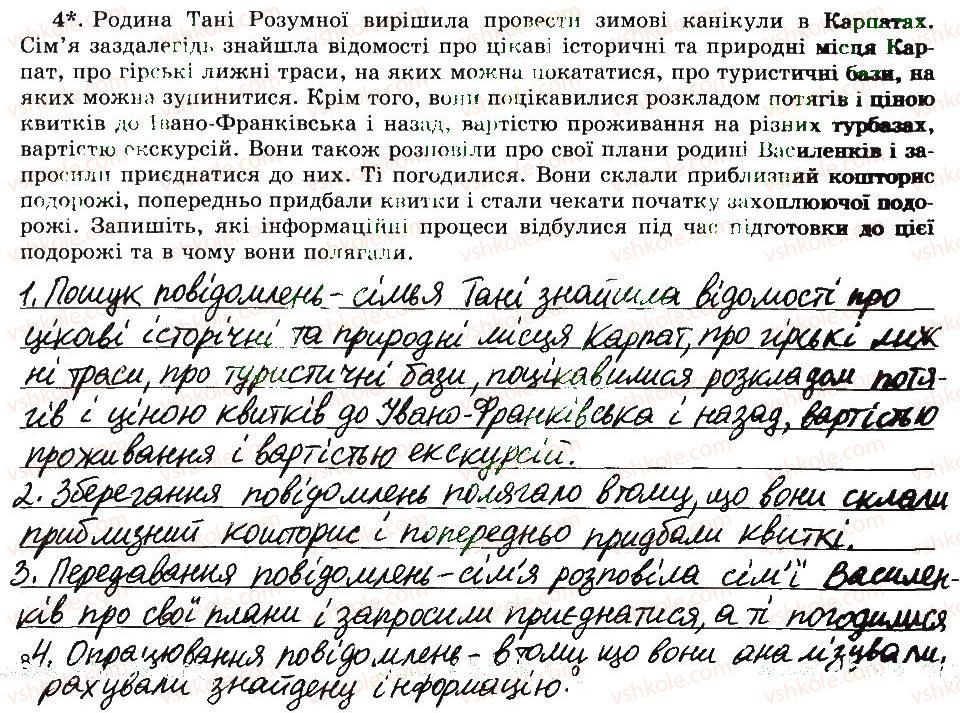 4*. Родина Тані Розумної вирішила провести зимові канікули в Карпатах.
Сім'я заздалегідь знайшла відомості про цікаві історичні та природні місця Кар-
пат, про гірські лижні траси, на яких можна покататися, про туристичні бази, на
яких можна зупинитися. Крім того, вони поцікавилися розкладом потягів і ціною
квитків до Івано-Франківська і назад, вартістю проживання на різних турбазах,
вартістю екскурсій. Вони також розповіли про свої плани родині Василенків і за-
просили приєднатися до них. Ті погодилися. Вони склали приблизний кошторис
подорожі, попередньо придбали квитки і стали чекати початку захоплюючої подо-
рожі. Запишіть, які інформаційні процеси відбулися під час підготовки до цієї
подорожі та в чому вони полягали.
1. Пошук повідомлень - сімья Тані знайшла відомості про
цікаві історічні та природні місця Карпат, про гірські лиж
ні траси, про туристичні бази, поцікавилися розкладом потя-
гів і ціною квитків до Івано-Франківська і назад, вартістью
проживання і вартістью екскурсій.
2. Зберегання повідомлень полягало втому, що вони склали
приблизний кошторис і попередньо придбали квиткі.
3. Передавання повідомлень - сім'я розповіла сім'ї Василен-
ків про свої плани і запросили приєднатися, а ті погодилися
8 4. Опрацювання повідомлень - втому що вони аналізували,
рахували знайдену інформацію.
vshkole.com